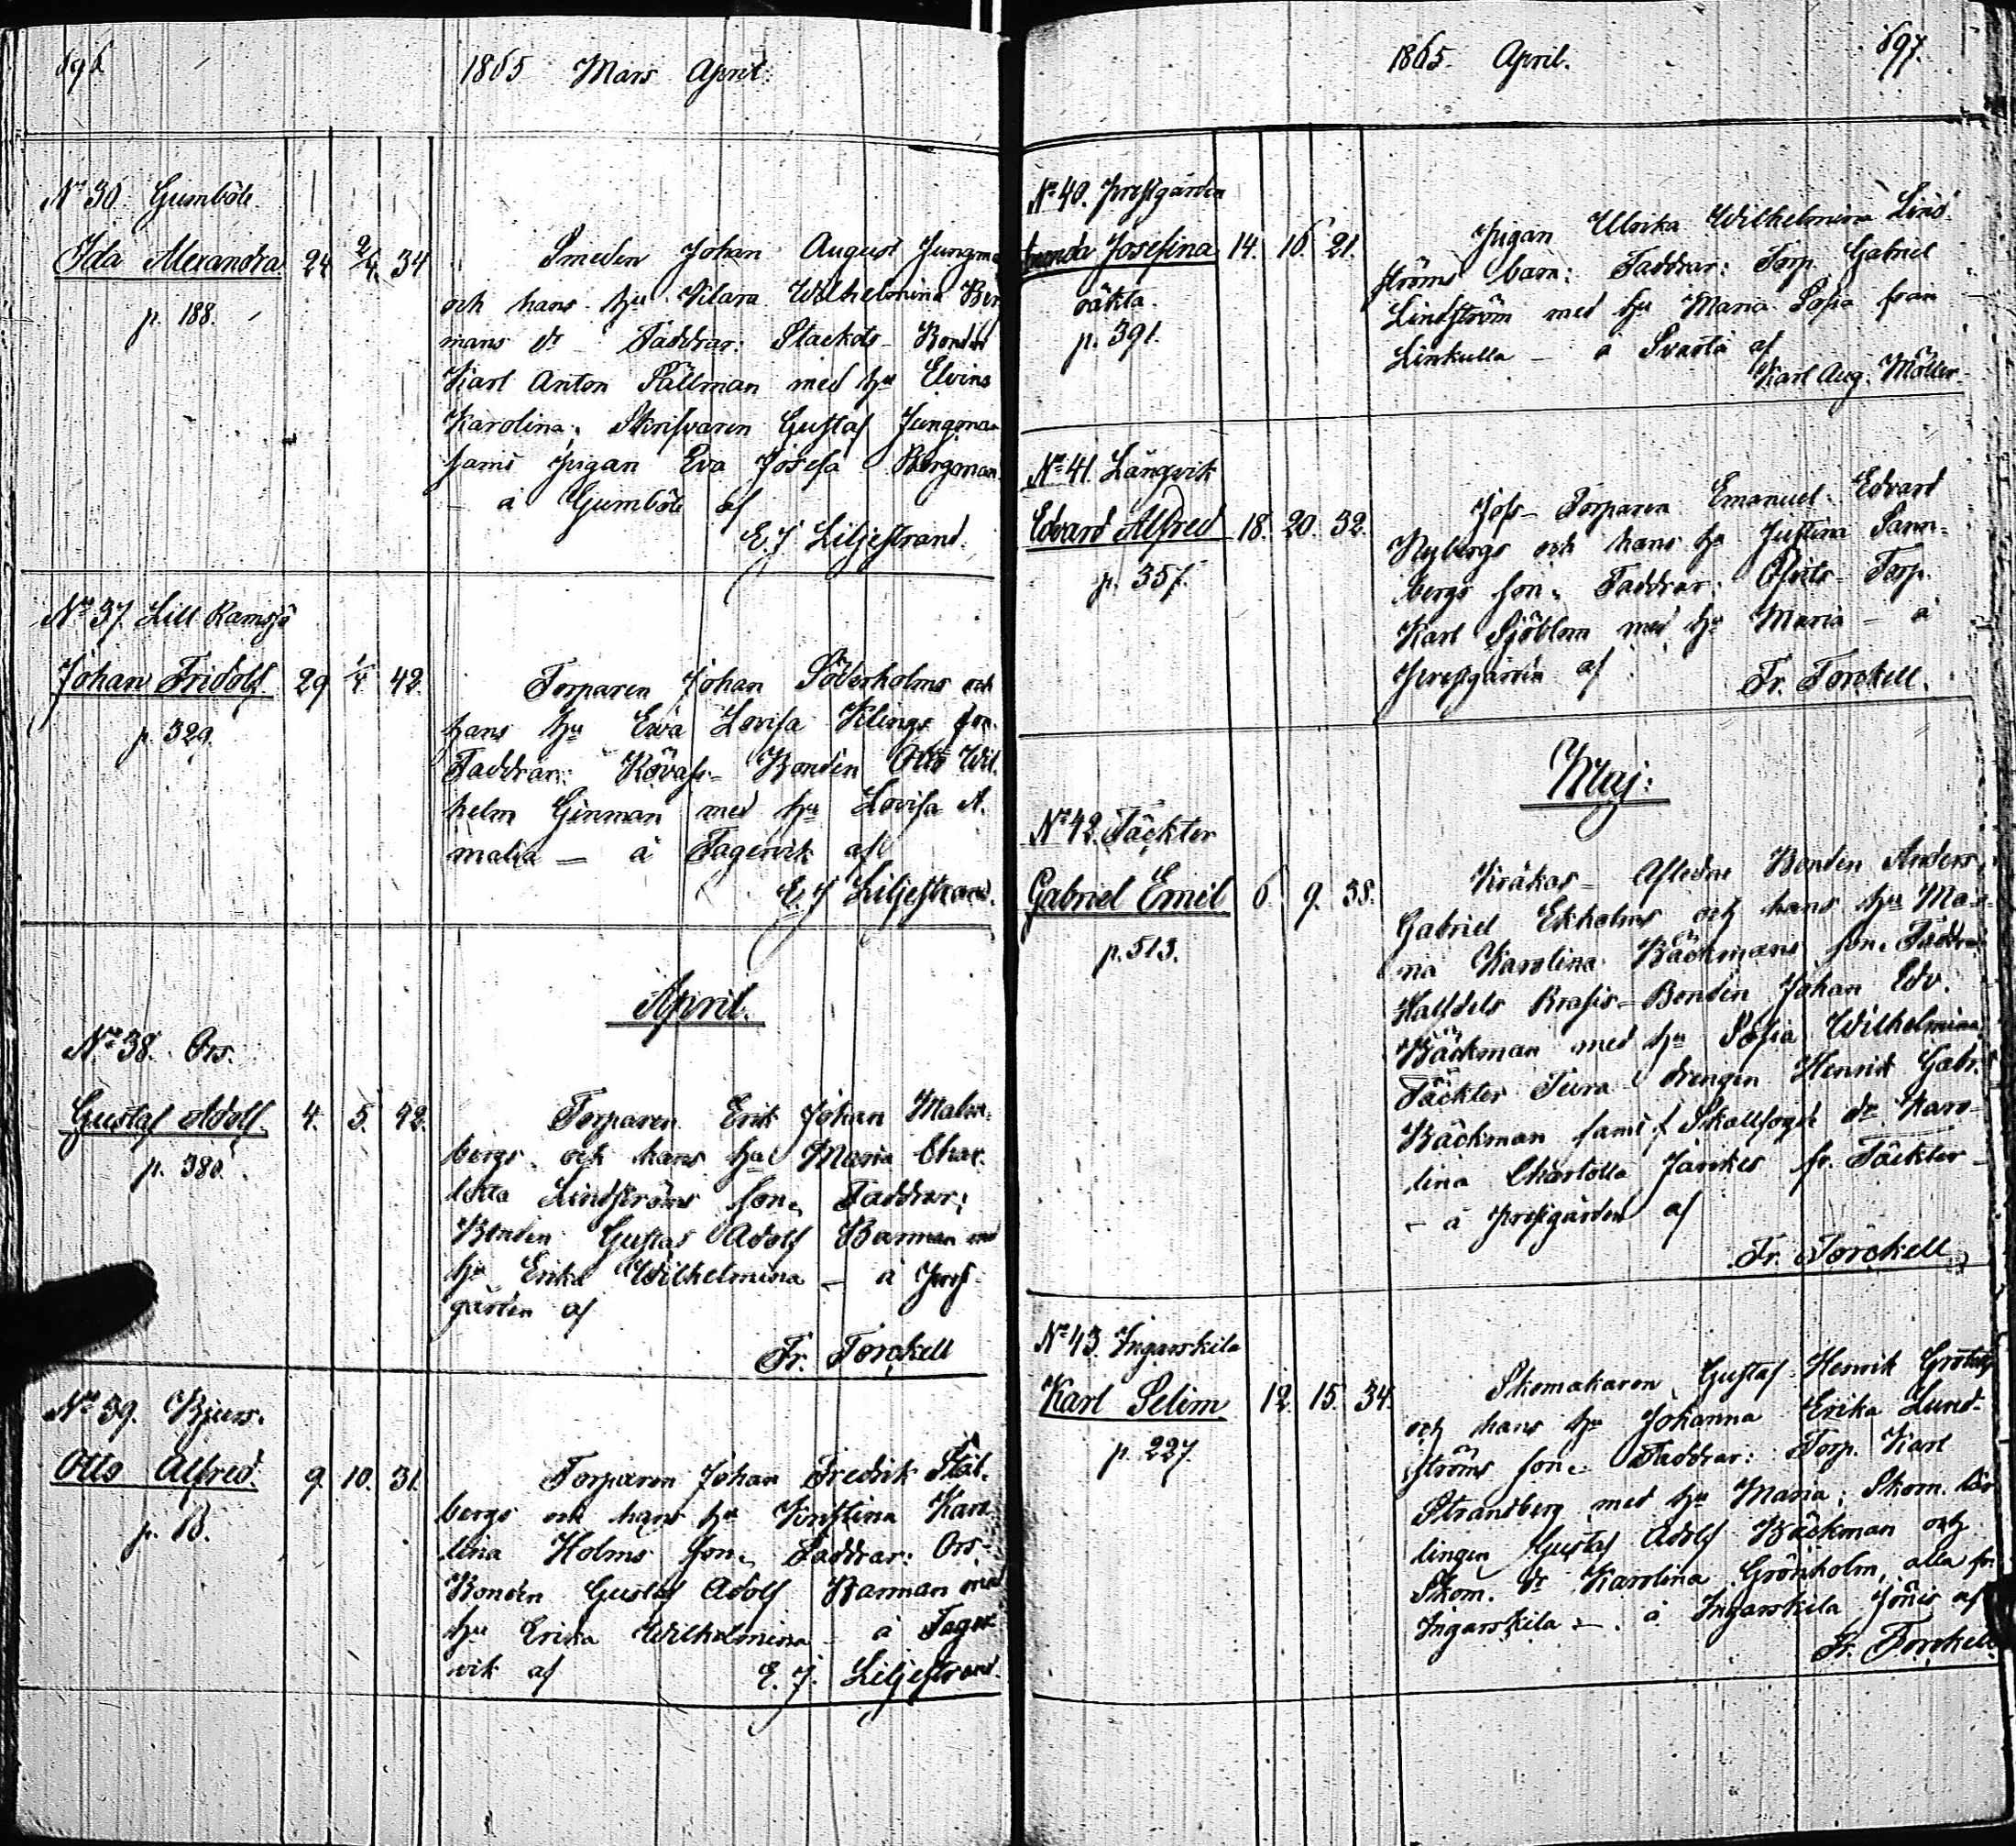 696
1865 Mars April.
No 36 Gumböle
Ida Alexandra 24 2/4 34
p. 188.
Smeden Johan August Jungma
och hans hu Wilhelmina Ber
mans dr Faddrar: Stackots Bonden
Karl Anton Sällman med hu Elvina
Karolina; Skrifvaren Gustaf Jungman
samt pigan Eva Josefa Bergman
— å Gumböle af
E. J Liljestrand.
No 37. Lill Ramsjö
Johan Fridolf. 29 1/4 42.
p. 329.
Torparen Johan Söderholms och
hans hu Ewa Lovisa Klings son.
Faddrar: Bonden Otto Wil.
helm Ginman med hu Lovisa A.
malia — å Fagervik af
E. J Liljestrand.
April.
No 38. Ors.
Gustaf Adolf. 4. 5. 42.
p. 380.
Torparen Erik Johan Malm.
bergs och hans hu Maria Char.
lotta Lindströms son. Faddrar:
Bonden Gustaf Adolf Barman med
hu Erika Wilhelmina — å Prest
gården af
Fr. Torckell
No 39. Bjurs.
Otto Alfred. 9. 10. 31.
p. 13.
Torparen Johan Fredrik Stål.
bergs och hans hu Kristina Karo
lina Holms son. Faddrar: Ors-
Bonden Gustaf Adolf Barman med
hu Erika Wilhelmina — å Fager
vik af E. J. Liljestrand.
1865 April. 697.
No 40. Prestgården
Josefina 14. 16. 21.
oäkta.
p. 391.
Pigan Ulrika Wilhelmina Lind
ströms barn: Faddrar: Torp. Gabriel
Lindström med hu Maria Sofia från
Linkulla — å Svartå af
Karl Aug. Möller
No 41. Långvik
Edvard Alfred 18. 20. 32.
p. 357.
Joss- Torparen Emanuel Edvard
Nybergs och hans hu Justina Sann-
bergs son. Faddrar: Torp.
Karl Sjöblom med hu Maria — å
Prestgården af
Fr. Torckell.
Maj:
No 42. Täckter
Gabriel Emil 6. 9. 38.
p. 513.
Kråkas- Aflidne Bonden Anders
Gabriel Ekholms och hans hu Ma-
ria Karolina Bäckmans son. Faddrar
Halfdels Brasis-Bonden Johan Edv.
Bäckman med hu Sofia Wilhelmina
Täckter Tura drengen Henrik Gabr.
Bäckman samt Skallfogd dr Karo-
lina Charlotta fr. Täckter
— å Prestgården af
Fr. Torckell
No 43. Ingarskila
Karl Selim 12. 15. 34.
p. 227.
Skomakaren Gustaf Henrik
och hans hu Johanna Erika Lund-
ströms son. Faddrar: Torp. Karl
Strandberg med hu Maria; Skom. lär
lingen Gustaf Adolf Bäckman och
Skom. dr Karolina Grönholm, alla fr.
Ingarskila —. å Ingarskila Jönis af
Fr. Torckell